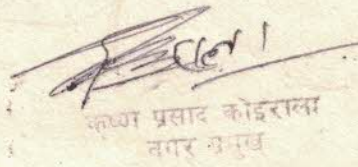 कृष्ण प्रसाद कोइराला
नगर प्रमुख